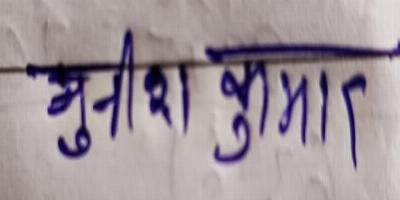 मुनीश कुमार